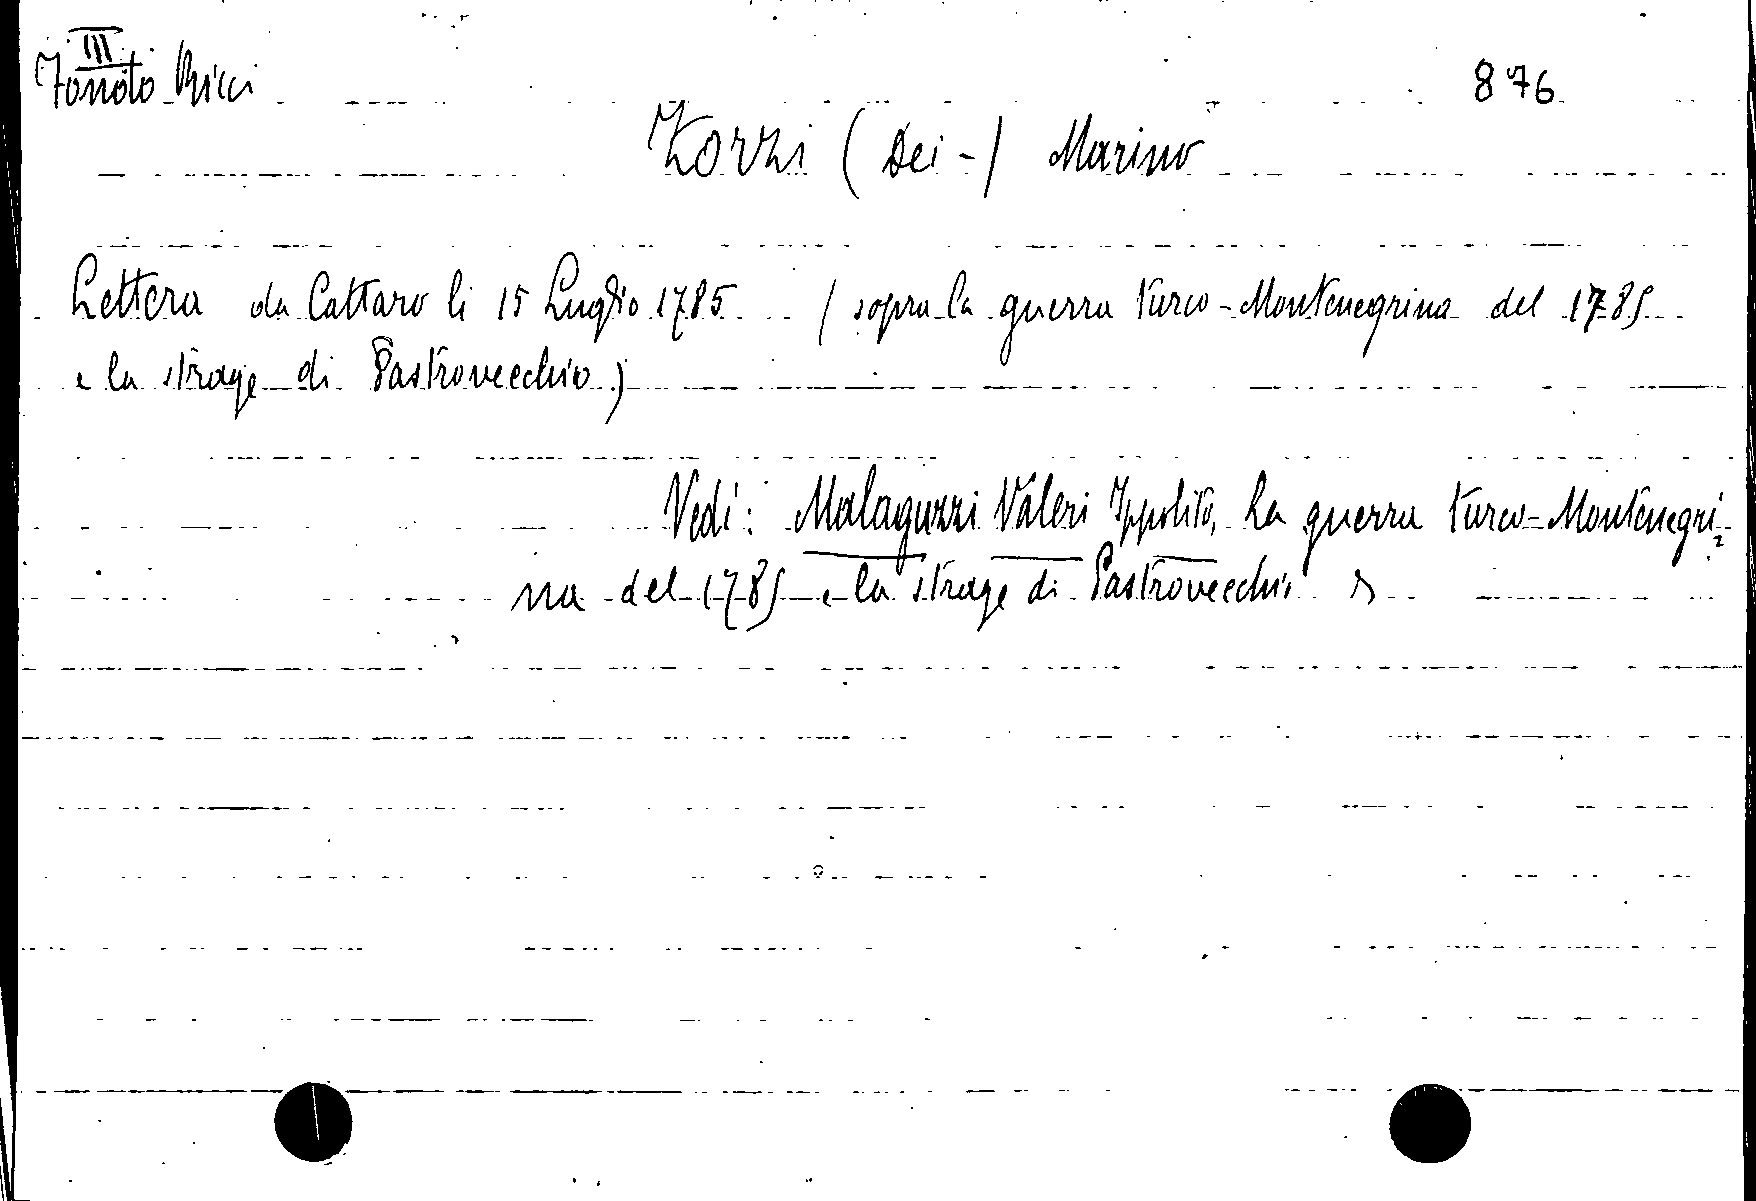 III
Fondo Ricci
876
Zorzi (Dei -) Marino
Lettera da Cattaro li 15 Luglio 1785 (sopra la guerra turco-Montenegrina del 1785
e la strage di Pastrovecchio)
Vedi: Malaguzzi Valeri Ippolito, La guerra turco-Montenegri-
na del 1785 e la strage di Pastrovecchio